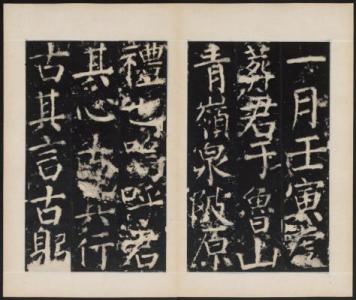 一月壬寅虔
葬君于魯山
青嶺泉陂原
禮也嗚呼君
其心古其行
古其言古躬